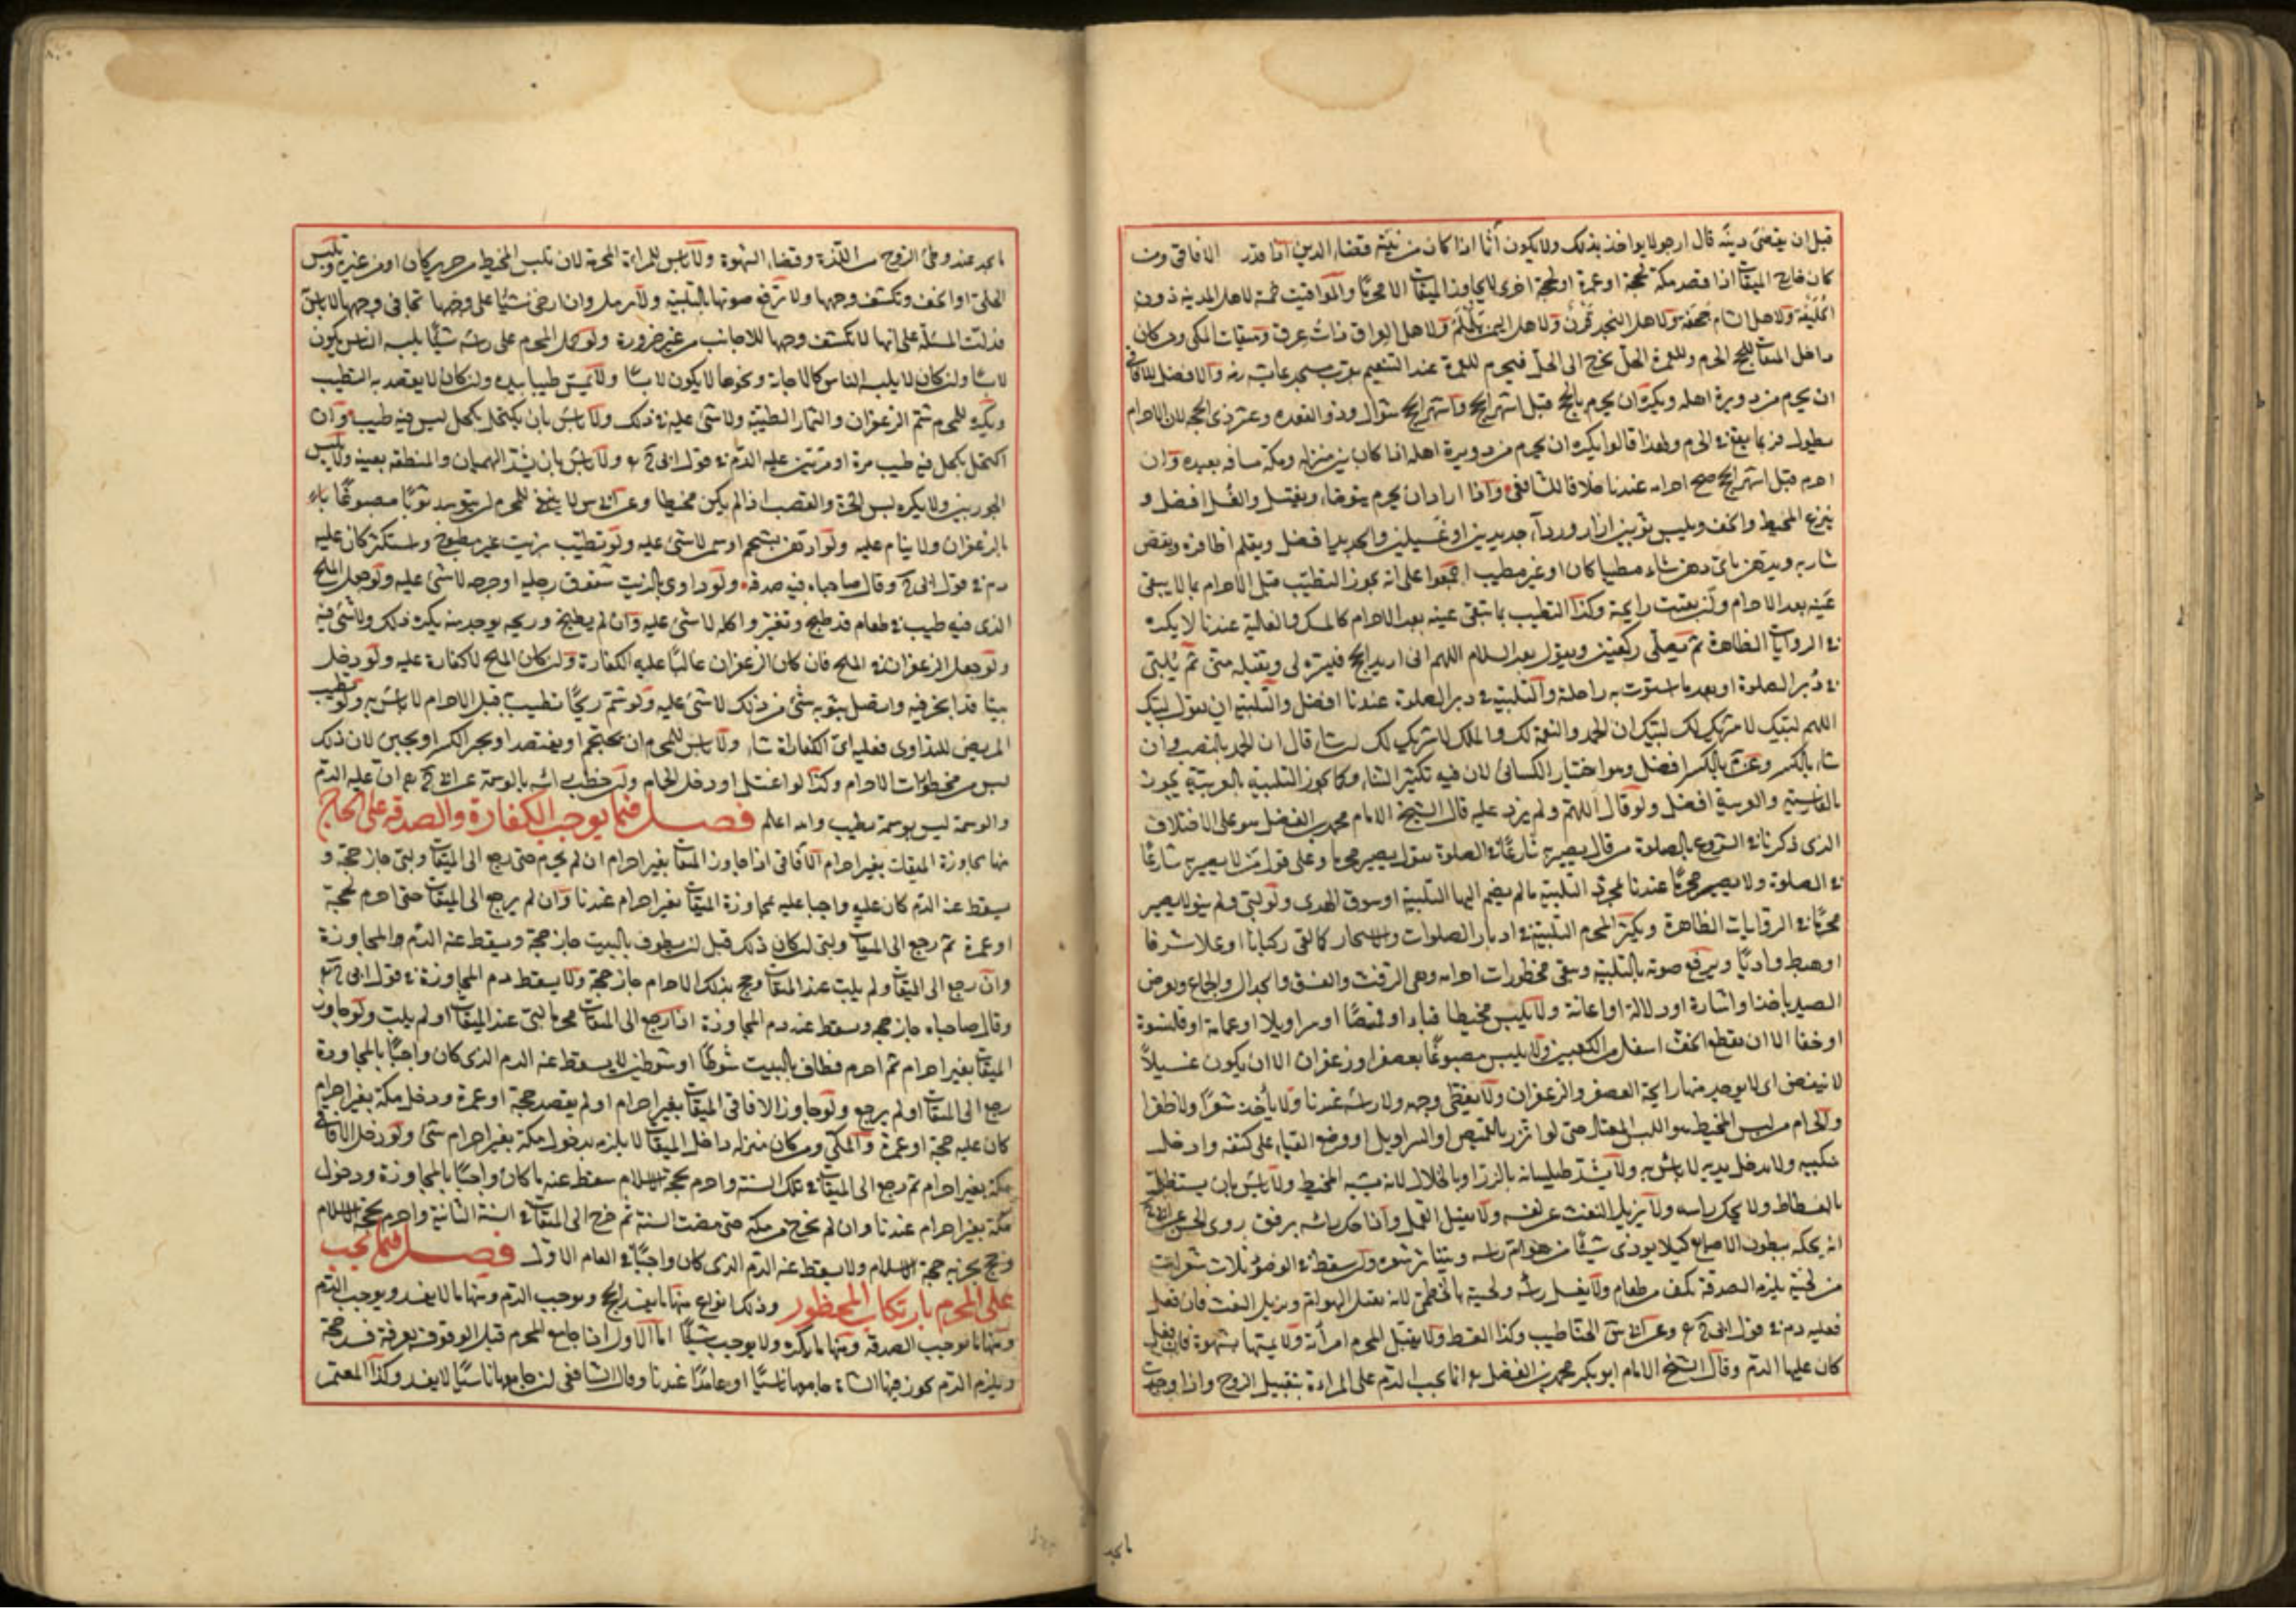 قبل ان يقضى دينه قال ارجو لا يواخذ بذلك ولا يكون آثما اذا كان من نيته قضاء الدين اذا قدر الافاقى ومن
كان خارج الميقات اذا قصد مكة لحجة او عمرة او لحاجة اخرى لا يجاوز الميقات الا محرما والمواقيت خمسة لاهل المدينة ذو
الحليفة ولاهل الشام جحفة ولاهل النجد قرن ولاهل اليمن يلملم ولاهل العراق ذات عرق وميقات المكى ومن كان
داخل الميقات للحج الحرم وللعمرة الحل يخرج الى الحل فيحرم للعمرة عند التنعيم بقرب مسجد عايشة رضه والافضل للافاقى
ان يحرم من دويرة اهله ويكره ان يحرم بالحج قبل اشهر الحج واشهر الحج شوال وذو القعدة وعشر ذى الحجة لان الاحرام
يطول فربما يقع فى الحرم ولهذا قالوا يكره ان يحرم من دويرة اهله اذا كان بين منزله ومكة مسافة بعيدة وان
احرم قبل اشهر الحج صح احرامه عندنا خلافا للشافعى واذا اراد ان يحرم يتوضا ويغتسل والغسل افضل و
ينزع المخيط والخف ويلبس ثوبين ازار ورداء جديدين او غسيلين والجديد افضل ويقلم اظافره ويقص
شاربه ويدهن باى دهن شاء مطيبا كان او غير مطيب اجمعوا على انه يجوز التطيب قبل الاحرام بما لا يبقى
عينه بعد الاحرام وان بقيت رايحته وكذا التطيب بما تبقى عينه بعد الاحرام كالمسك والغالية عندنا لا يكره
فى الروايات الظاهرة ثم يصلى ركعتين ويقول بعد السلام اللهم انى اريد الحج فيسره لى وتقبله منى ثم يلبى
فى دبر الصلوة او بعد ما استوت به راحلته والتلبية فى دبر الصلوة عندنا افضل والتلبية ان يقول لبيك
اللهم لبيك لا شريك لك لبيك ان الحمد والنعمة لك والملك لا شريك لك ان شاء قال ان الحمد بالنصب وان
شاء بالكسر وعن بالكسر افضل وهو اختيار الكسائى لان فيه تكثير الثناء وكما يجوز التلبية بالعربية يجوز
بالفارسية والعربية افضل ولو قال اللهم ولم يزد عليه قال الشيخ الامام محمد بن الفضل هو على الاختلاف
الذى ذكرنا فى الشروع بالصلوة من قال يصير به شارعا فى الصلوة يقول يصير محرما وعلى قول من لا يصير به شارعا
فى الصلوة ولا يصير محرما عندنا بمجرد التلبية ما لم يضم اليها التلبية او سوق الهدى ولو لبى ولم ينو لا يصير
محرما فى الروايات الظاهرة ويكثر المحرم التلبية فى ادبار الصلوات والاسحار كلما لقى ركبانا او علا شرفا
او هبط واديا ويرفع صوته بالتلبية ويتقى محظورات احرامه وهى الرفث والفسق والجدال والجماع وتعرض
الصيد باخذ او اشارة او دلالة او اعانة ولا يلبس مخيطا قباء او قميصا او سراويلا او عمامة او قلنسوة
او خفا الا ان يقطع الخف اسفل من الكعبين ولا يلبس مصبوغا بعصفر او زعفران الا ان يكون غسيلا
لا ينفض اى لا يوجد منها رايحة العصفر والزعفران ولا يغطى وجهه ولا راسه عندنا ولا ياخذ شعرا ولا ظفرا
والحرام من لبس المخيط هو اللبس المعتاد حتى لو اتزر بالقميص او السراويل او وضع القباء على كتفه وادخل
منكبيه ولا يدخل يديه لا باس به ولا يشد طيلسانه بالزر او بالخلال لانه يشبه المخيط ولا باس بان يستظل
بالفسطاط ولا يحك راسه ولا يزيل التفث عن نفسه ولا يقتل القمل واذا حك راسه برفق روى الحسن عن
انه يحكه ببطون الاصابع كيلا يوذى شيئا من هوام راسه ويتناثر شعره وان سقط فى الوضوء ثلات شعرات
من لحيته يلزمه الصدقة بكف من طعام ولا يغسل راسه ولحيته بالخطمى لانه يقتل الهوام ويزيل التفث فان فعل
فعليه دم فى قول وعن الحنا طيب وكذا القسط ولا يقبل المحرم امرأته ولا يمسها بشهوة فان فعل
كان عليها الدم وقال الشيخ الامام ابو بكر محمد بن الفضل انما يجب الدم على المراءة بتقبيل الزوج واذا وجدت
ما يجد
ما يجد عند وطئ الزوج من اللذة وقضاء الشهوة ولا باس للمراءة المحرمة لان تلبس المخيط من حرير كان او من غيره وتلبس
الحلى او الخف وتكشف وجهها ولا ترفع صوتها بالتلبية ولا ترمل وان ارخى شيئا على وجهها تجافى وجهها لا باس
فدلت المسئلة على انها لا تكشف وجهها للاجانب من غير ضرورة ولو حمل المحرم على راسه شيئا يلبسه الناس يكون
لابسا وان كان لا يلبسه الناس كالاجانة ونحوها لا يكون لابسا ولا يمس طيبا بيده وان كان لا يقصد به التطيب
ويكره للمحرم شم الزعفران والثمار الطيبة ولا شئ عليه فى ذلك ولا باس بان يكتحل بكحل ليس فيه طيب وان
اكتحل بكحل فيه طيب مرة او مرتين عليه الدم فى قول ولا باس بان يشد الهميان والمنطقة بعينه ولا يلبس
الجوربين ولا يكره لبس الخز والقصب اذا لم يكن مخيطا وعن لا ينبغى للمحرم ان يتوسد ثوبا مصبوغا
بالزعفران ولا ينام عليه ولو ادهن بشحم او سمن لا شئ عليه ولو تطيب بزيت غير مطبوخ واستكثر كان عليه
دم فى قول وقال صاحباه فيه صدقة ولو داوى بالزيت شقوق رجليه او جرحه لا شئ عليه ولو جعل الملح
الذى فيه طيب فى طعام قد طبخ وتغير واكله لا شئ عليه وان لم يطبخ وريحه يوجد منه يكره ذلك ولا شئ فيه
ولو جعل الزعفران فى الملح فان كان الزعفران غالبا عليه الكفارة وان كان الملح لا كفارة عليه ولو دخل
بيتا قد ابخر فيه واتصل بثوبه شئ من ذلك لا شئ عليه ولو شم ريحا تطيب به قبل الاحرام لا باس به ولو تطيب
المريض للتداوى فعليه اى الكفارات شاء ولا باس للمحرم ان يحتجم او يفتصد او يجبر الكسر او يجبس لان ذلك
ليس من محظورات الاحرام وكذا لو اغتسل او دخل الحمام ولو خضب راسه بالوسمة عن ان عليه الدم
والوسمة ليس بوسمة بطيب والله اعلم فصل فيما يوجب الكفارة والصدقة على الحاج
منها مجاوزة الميقات بغير احرام الافاقى اذا جاوز الميقات بغير احرام ان لم يحرم حتى رجع الى الميقات ولبى جاز حجة و
سقط عنه الدم كان عليه واجبا عليه بمجاوزة الميقات بغير احرام عندنا وان لم يرجع الى الميقات حتى احرم لحجة
او عمرة ثم رجع الى الميقات ولبى ان كان ذلك قبل ان يطوف بالبيت جاز حجة وسقط عنه الدم والمجاوزة
وان رجع الى الميقات ولم يلب عند الميقات وحج بذلك الاحرام جاز حجة ولا يسقط دم المجاوزة فى قول
وقال صاحباه جاز حجه وسقط عنه دم المجاوزة اذا رجع الى الميقات محرما لبى عند الميقات او لم يلب ولو جاوز
الميقات بغير احرام ثم احرم فطاف بالبيت شوطا او شوطين لا يسقط عنه الدم الذى كان واجبا بالمجاوزة
رجع الى الميقات او لم يرجع ولو جاوز الافاقى الميقات بغير احرام او لم يقصد حجة او عمرة ودخل مكة بغير احرام
كان عليه حجة او عمرة والمكى ومن كان منزله داخل الميقات لا يلزمه بدخول مكة بغير احرام شئ ولو دخل الافاقى
مكة بغير احرام ثم رجع الى الميقات فى تلك السنة واحرم بحجة الاسلام سقط عنه ما كان واجبا بالمجاوزة ودخول
مكة بغير احرام عندنا وان لم يخرج من مكة حتى مضت السنة ثم خرج الى الميقات فى السنة الثانية واحرم بحجة الاسلام
وحج يجزيه حجة الاسلام ولا يسقط عنه الدم الذى كان واجبا فى العام الاول فصل فيما يجب
على المحرم بارتكاب المحظور وذلك انواع منها ما يفسد الحج ويوجب الدم ومنها ما لا يفسد ويوجب الدم
ومنها ما يوجب الصدقة ومنها ما يكره ولا يوجب شيئا اما الاول اذا جامع المحرم قبل الوقوف بعرفة فسد حجه
ويلزم الدم يجوز فيها الشاة جامعها ناسيا او عامدا عندنا وقال الشافعى ان جامعها ناسيا لا يفسد وكذا المعتمر